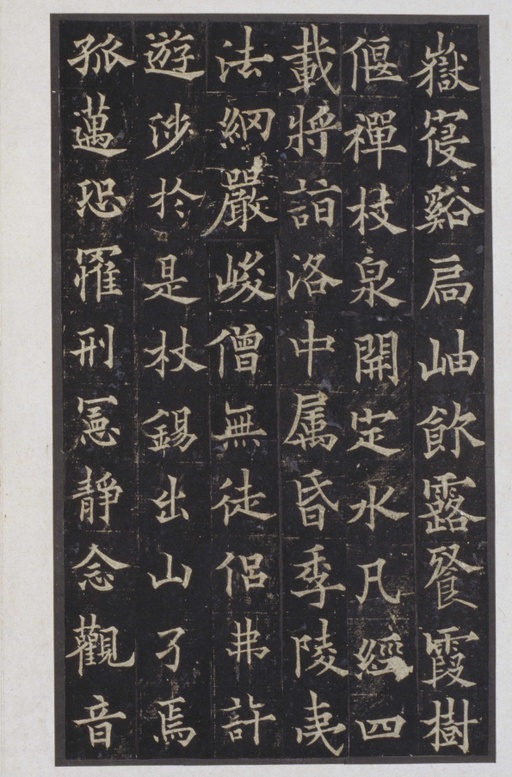 嶽寑谿扃岫飲露飡霞樹
偃禪枝泉開定水凡經四
載將詣洛中属昏季陵夷
法網嚴峻僧無徒侣弗許
遊涉於是杖錫出山孑焉
孤邁恐罹刑憲靜念觀音